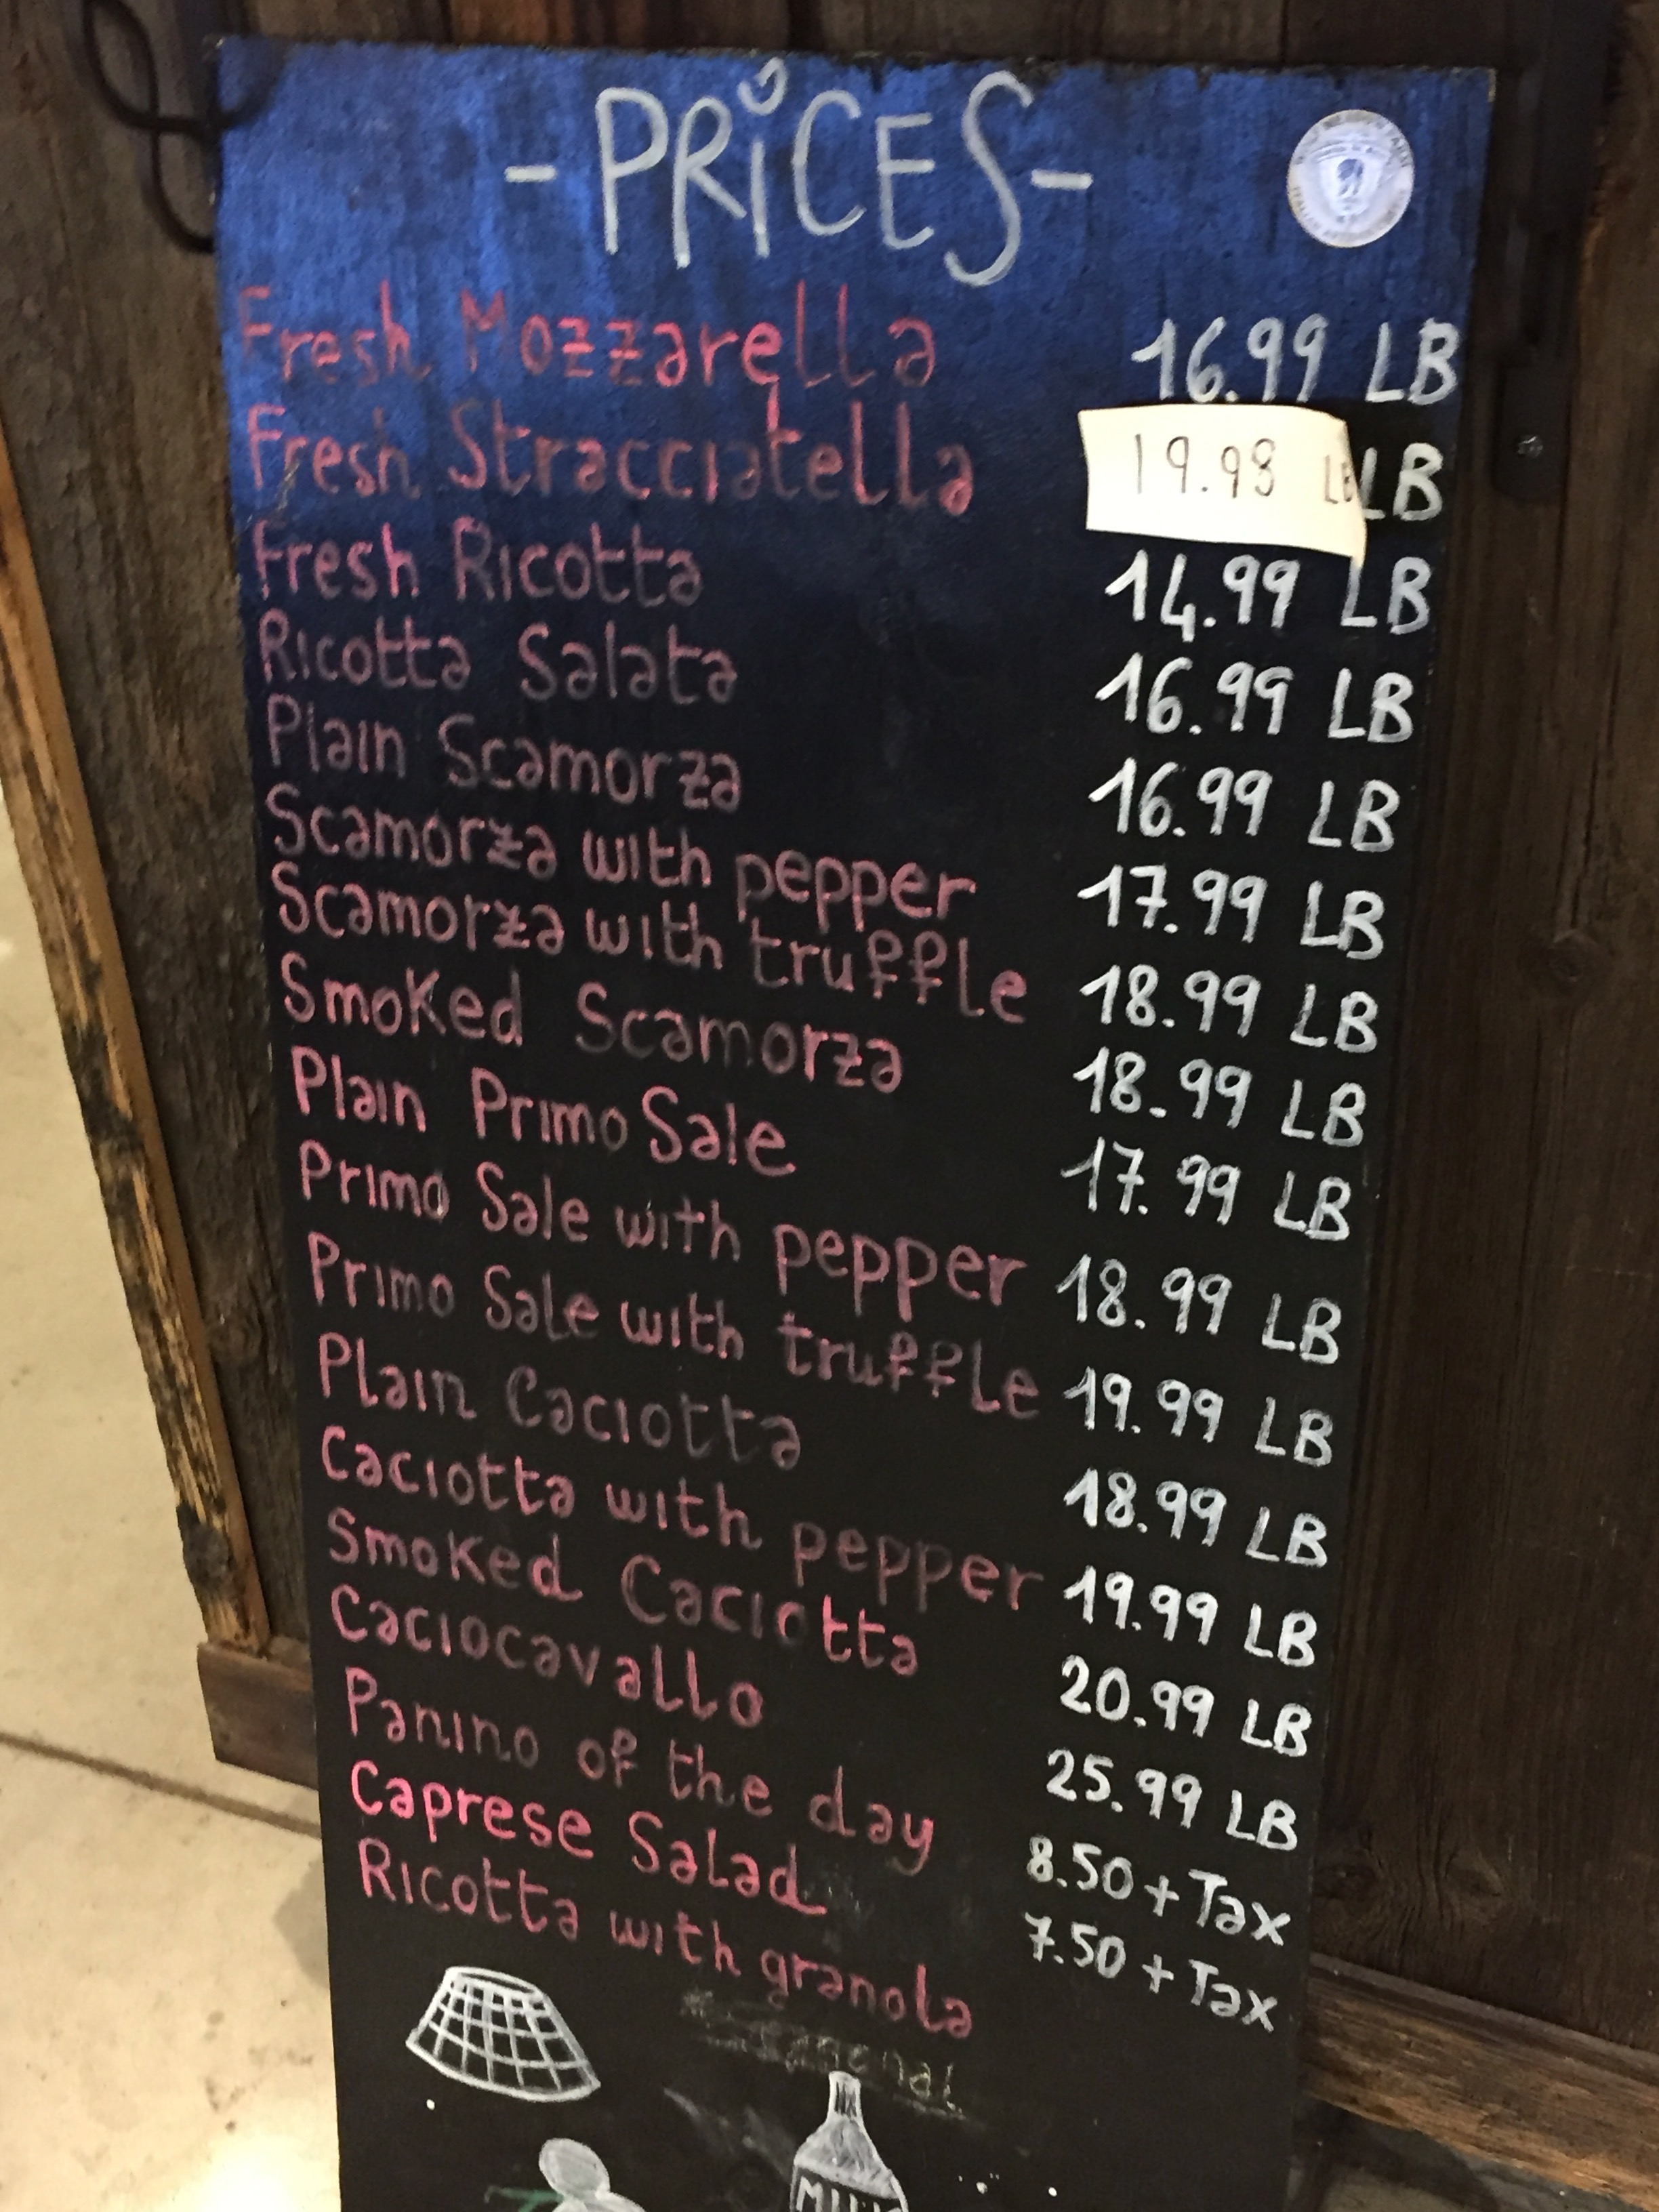 -PRiCES-
Fresh Mozzarella 16.99 LB
Fresh Stracciatella 19.98 LB LB
Fresh Ricotta 14.99 LB
Ricotta Salata 16.99 LB
Plain Scamorza 16.99 LB
Scamorza with pepper 17.99 LB
Scamorza with truffle 18.99 LB
Smoked Scamorza 18.99 LB
Plain Primo Sale 17.99 LB
Primo Sale with pepper 18.99 LB
Primo Sale with truffle 19.99 LB
Plain Caciotta 18.99 LB
Caciotta with pepper 19.99 LB
Smoked Caciotta 20.99 LB
Caciocavallo 25.99 LB
Panino of the day 8.50 + Tax
Caprese Salad 7.50 + Tax
Ricotta with granola